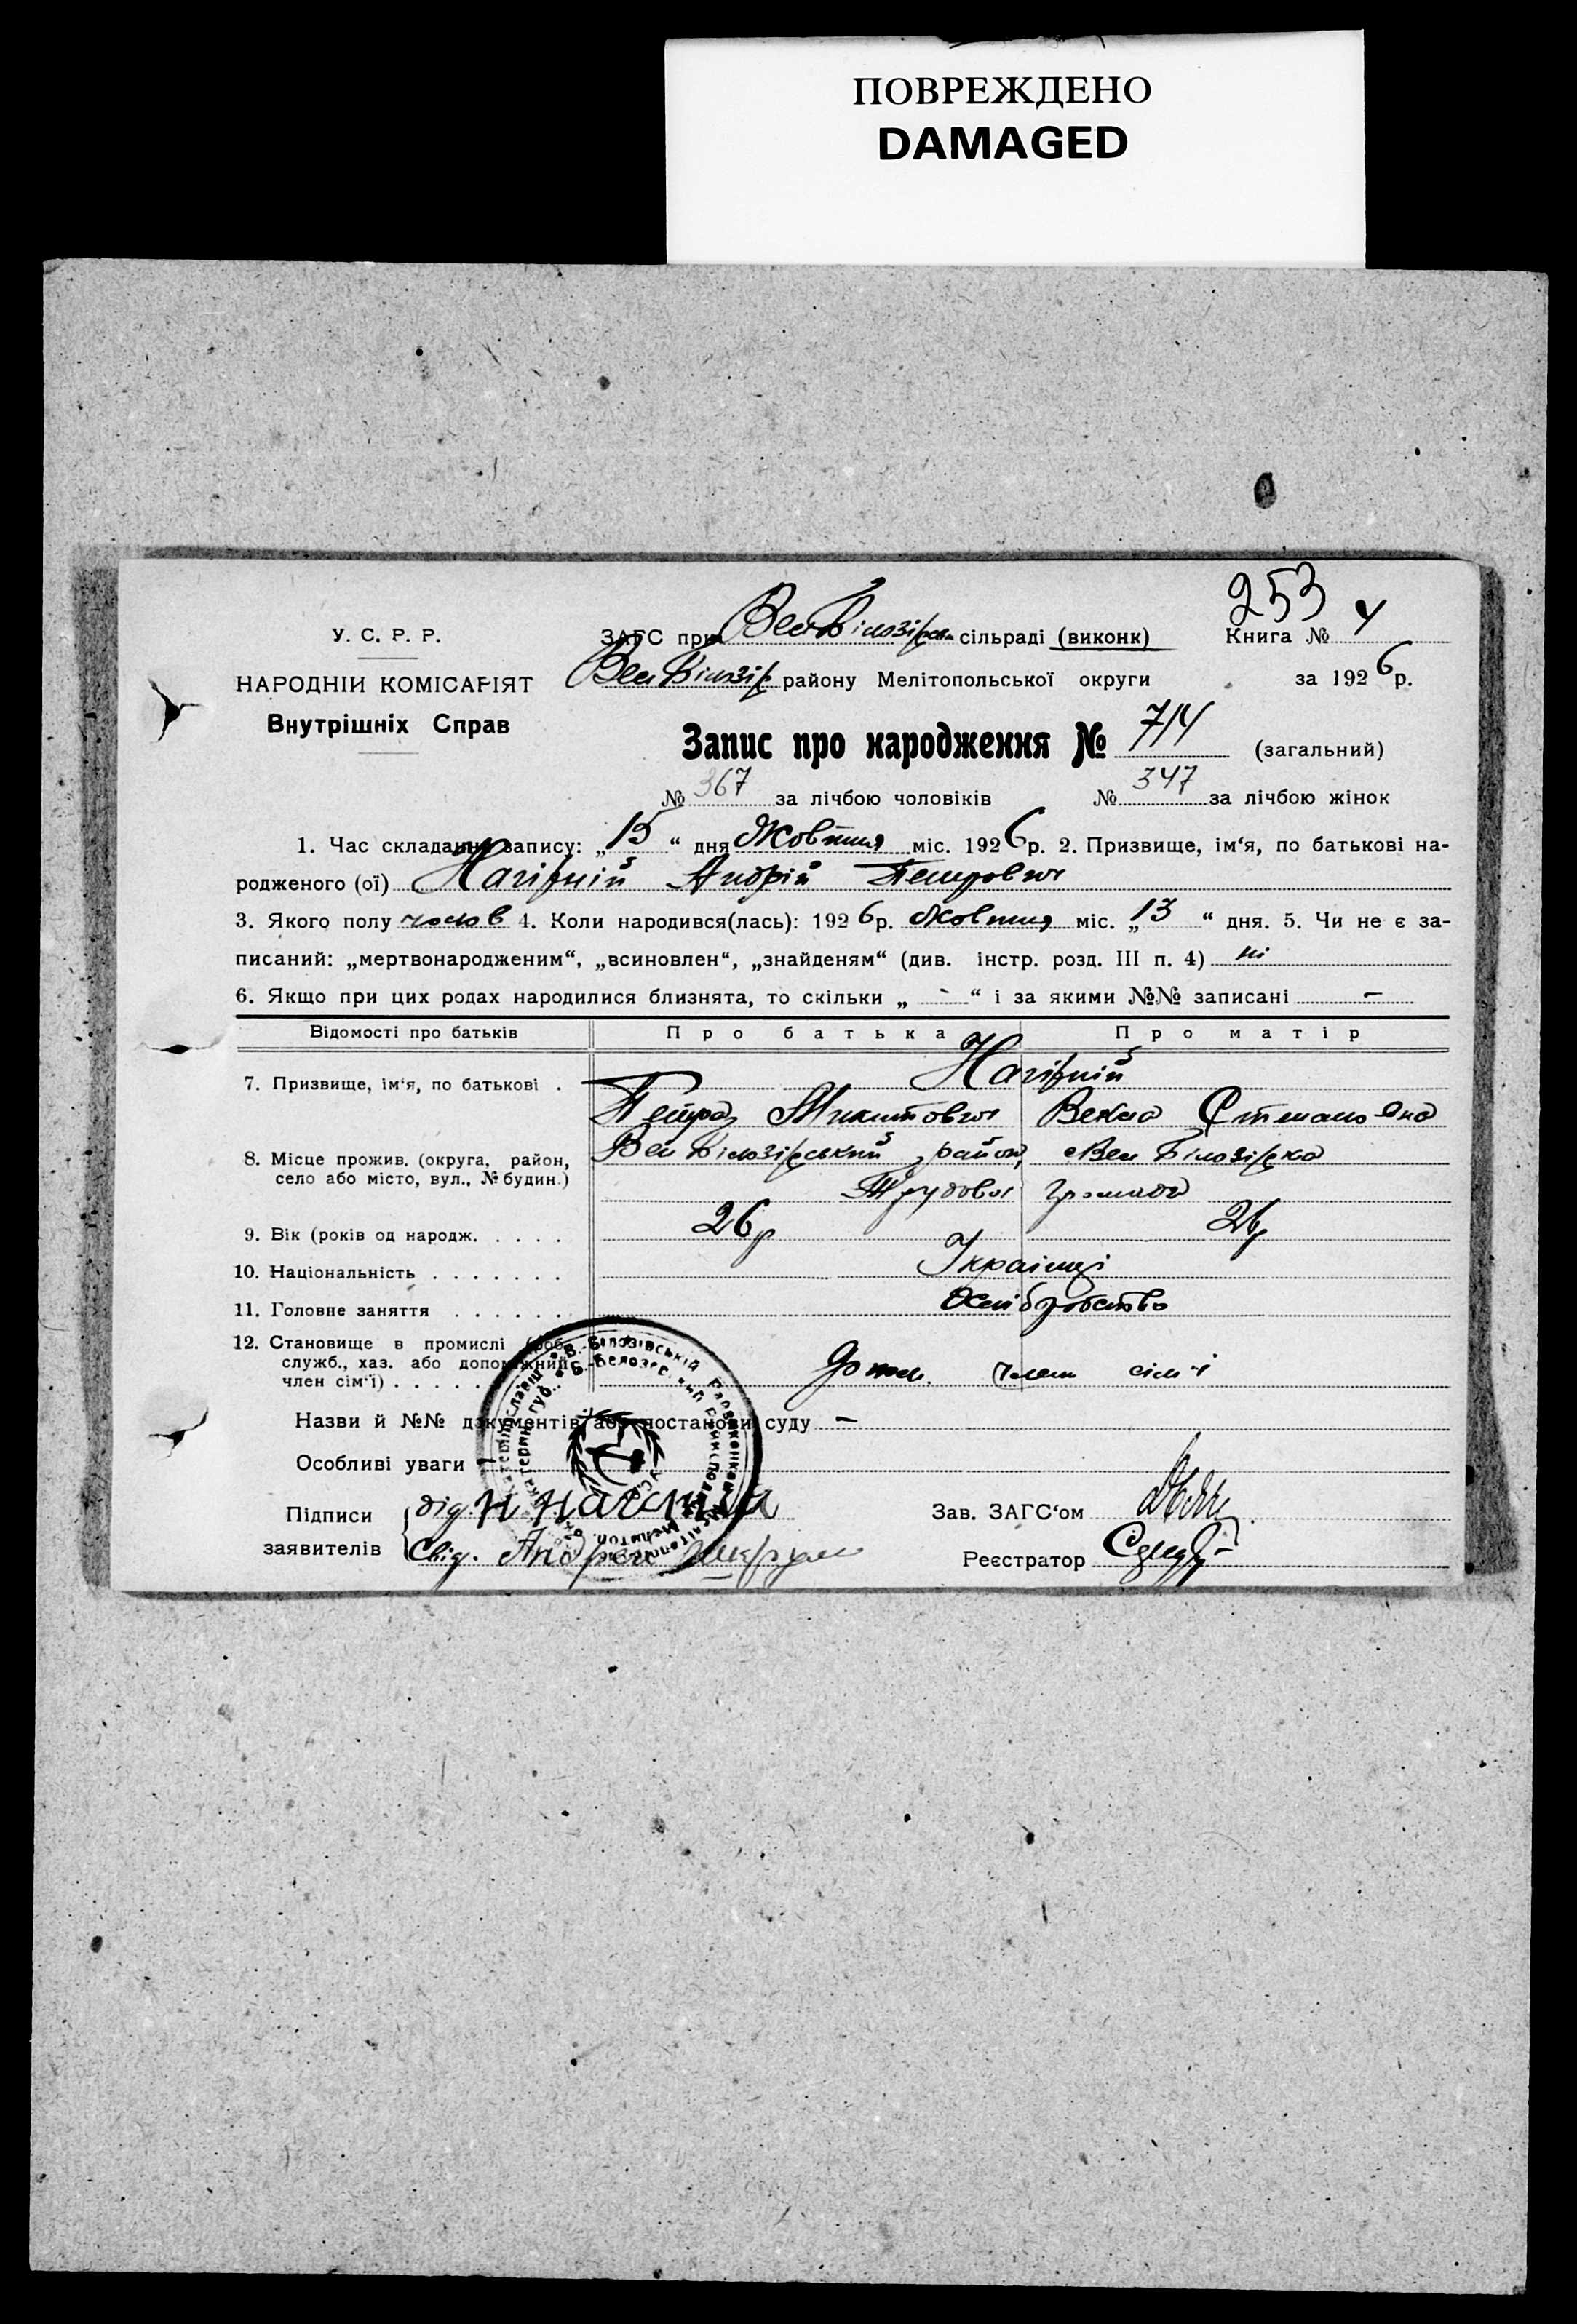 ПОВРЕЖДЕНО
DAMAGED
253
У. С. Р. Р.
ЗАГС при Вел Білозірськ. сільраді (виконк) Книга № 4
НАРОДНІЙ КОМІСАРІЯТ
Вел Білозір району Мелітопольської округи за 1926 р.
Внутрішніх Справ
Запис про народження № 714 (загальний)
№ 367 за лічбою чоловіків № 347 за лічбою жінок
1. Час складання запису: „15“ дня Жовтня міс. 1926 р. 2. Призвище, ім‘я, по батькові на-
родженого (ої) Нагірній Андрій Петрович
3. Якого полу чолов 4. Коли народився(лась): 1926 р. Жовтня міс. „13“ дня. 5. Чи не є за-
писаний: „мертвонародженим“, „всиновлен“, „знайденям“ (див. інстр. розд. III п. 4) ні
6. Якщо при цих родах народилися близнята, то скільки „ - “ і за якими №№ записані —
Відомості про батьків Про батька Про матір
7. Призвище, ім‘я, по батькові . Нагірній
Петро Микитович Векла Степановна
8. Місце прожив. (округа, район, Вел Білозірський район, Вел Білозірка
село або місто, вул., № будин.)
Трудова громада
9. Вік (років од народж. . . . . 26 р 26 р
10. Національність . . . . . . . Українці
11. Головне заняття . . . . . . Хліборобство
12. Становище в промислі (роб.
служб., хаз. або допоміжний
член сім‘ї) . . . . . член сім‘ї
Назви й №№ документів або постанови суду —
Особливі уваги
Підписи
заявителів
дід.
Свід. Андрей
Зав. ЗАГС‘ом
Реєстратор